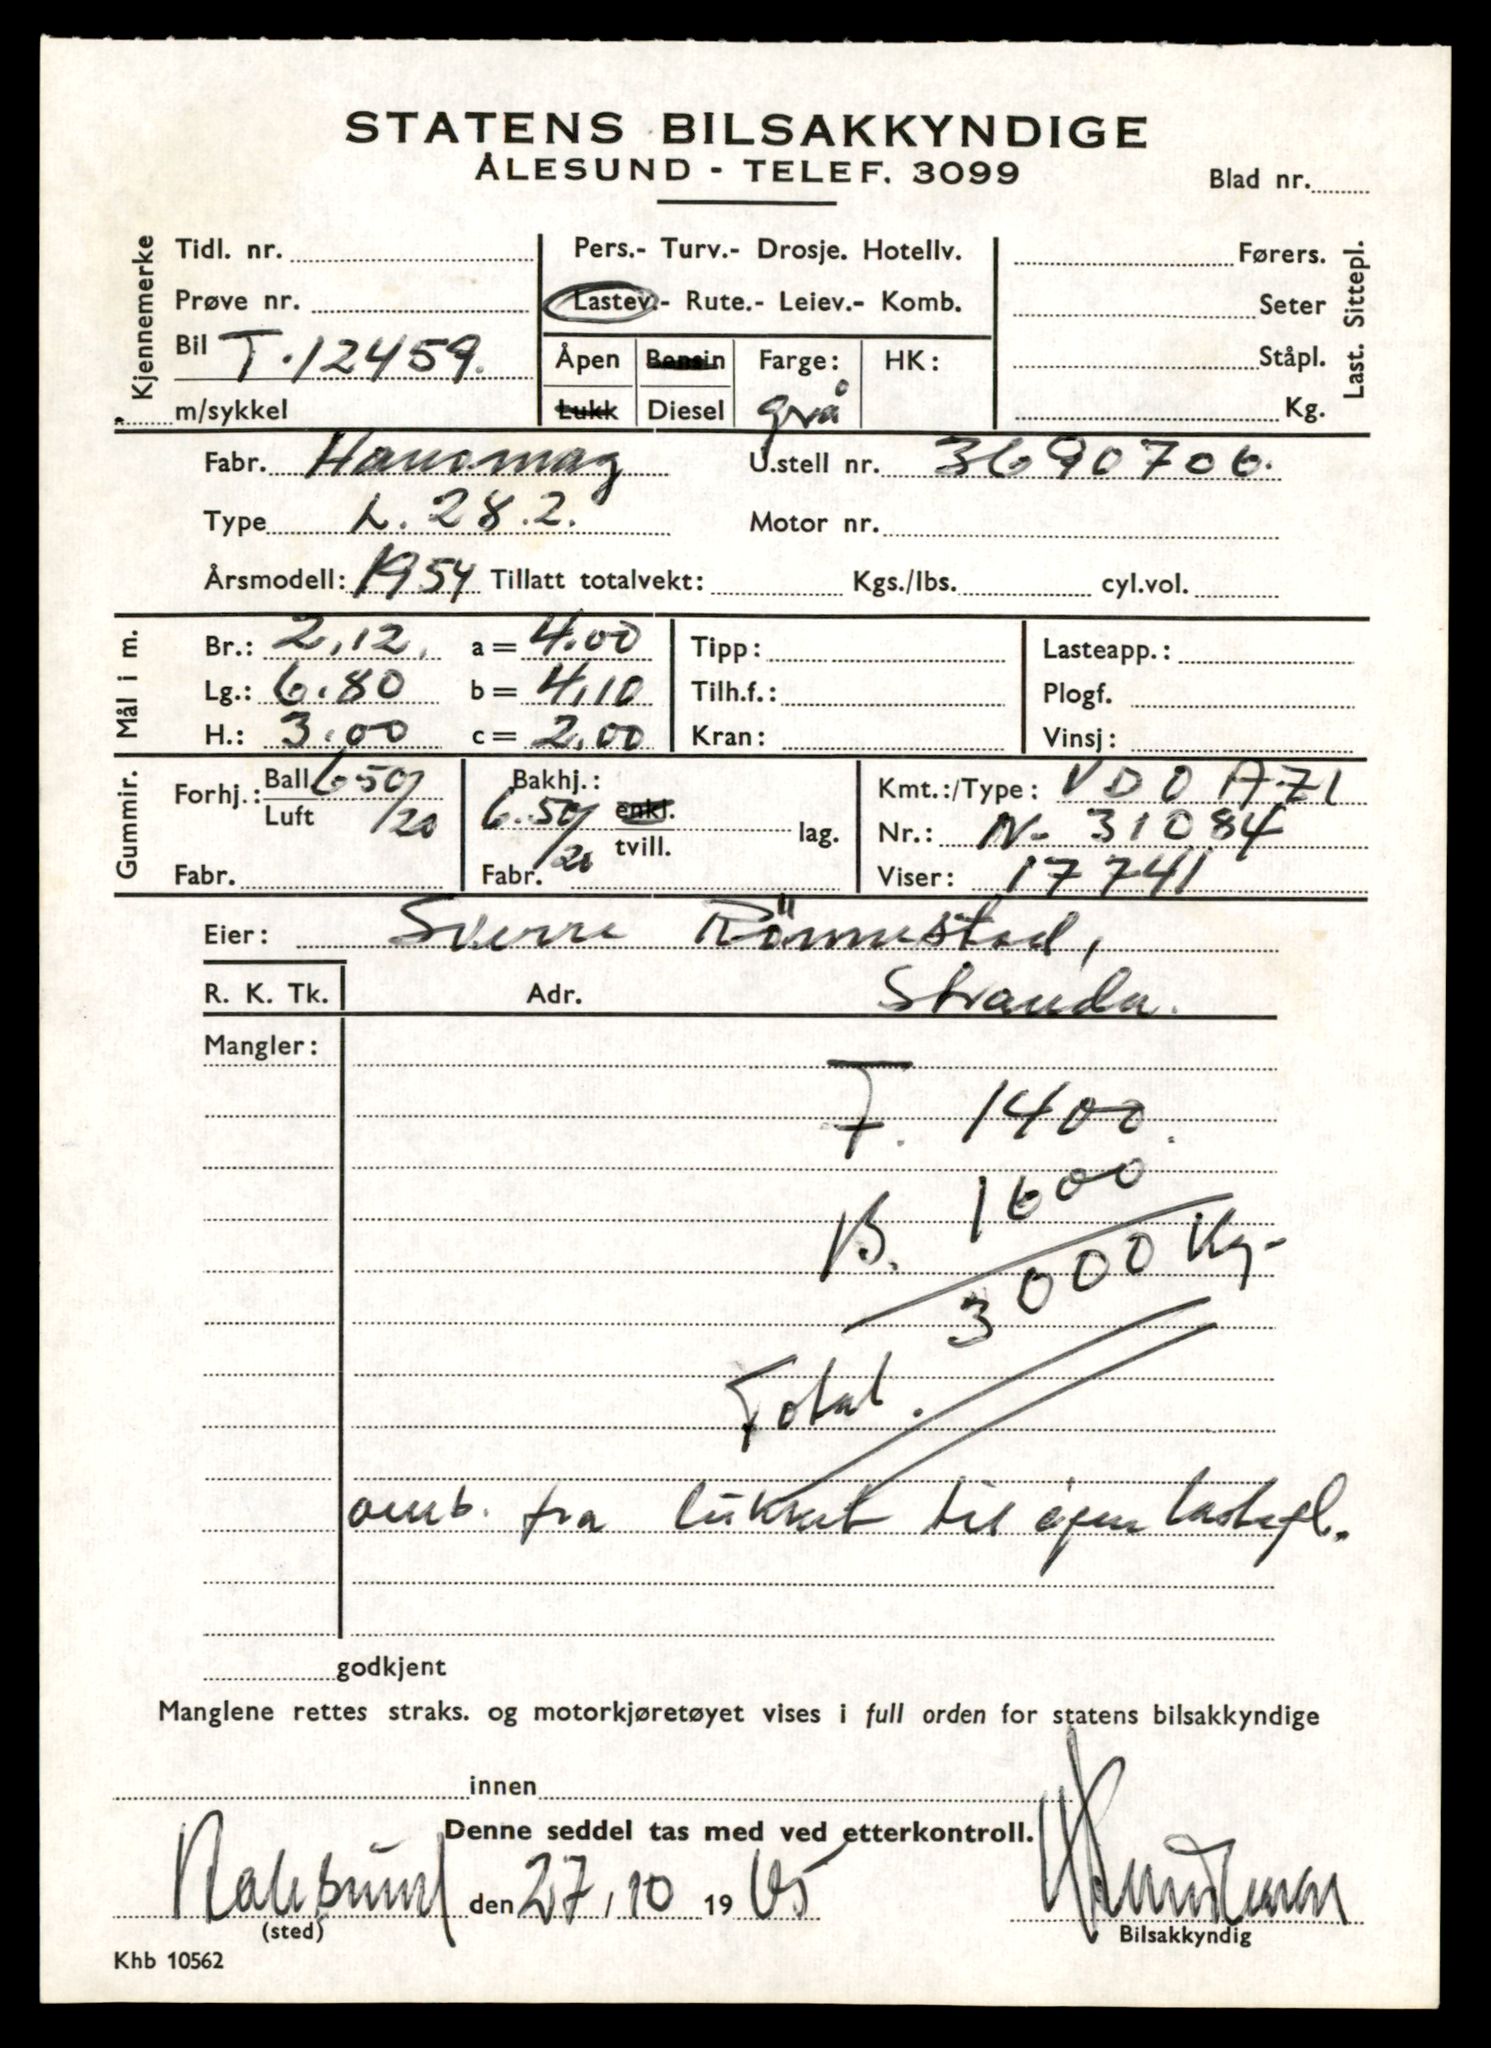 STATENS BILSAKKYNDIGE
ÅLESUND - TELEF. 3099
Blad nr.
Kjennemerke
Tidl. nr.
Prøve nr.
Bil T.12459.
m/sykkel
Pers.- Turv.- Drosje. Hotellv.
Lastev.- Rute.- Leiev.- Komb.
Åpen Bensin Farge: HK:
Lukk Diesel grå
Førers.
Seter
Ståpl.
Kg.
Last. Sittepl.
Fabr. Hanomag U.stell nr. 3690706.
Type L. 28.2. Motor nr.
Årsmodell: 1954 Tillatt totalvekt: Kgs./lbs. cyl.vol.
Mål i m.
Br.: 2,12. a = 4.00 Tipp: Lasteapp.:
Lg.: 6.80 b = 4,10 Tilh.f.: Plogf.
H.: 3.00 c = 2,00 Kran: Vinsj:
Gummir.
Forhj.: Ball 650/20 Luft
Fabr.
Bakhj.:
6.50/20 enkl. tvill. lag.
Fabr.
Kmt.:/Type: VDO A-71
Nr.: N- 31084
Viser: 17741
Eier: Sverre Rönnestad,
R. K. Tk. Adr. Stranda.
Mangler:
F. 1400.
B. 1600
3000 Kg-
Total.
omb. fra lukket til åpen
godkjent
Manglene rettes straks. og motorkjøretøyet vises i full orden for statens bilsakkyndige
innen
Denne seddel tas med ved etterkontroll.
den 27/10 1965
(sted)
Bilsakkyndig
Khb 10562